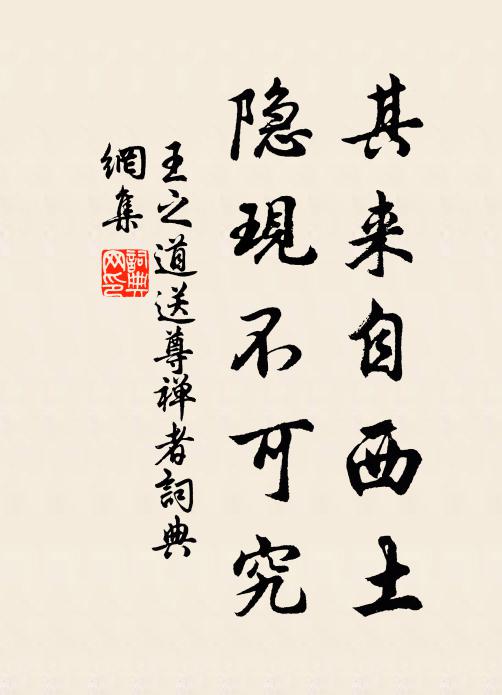 其来自西土
隐現不可究
王之道送尊禅者詞典
網集
詞典
网印